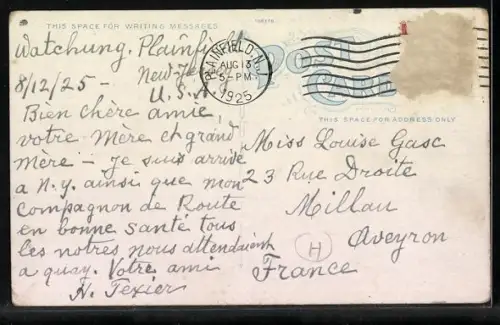 THIS SPACE FOR WRITING MESSAGES.
Watchung. Plainfield
8/12/25 -
U.S.A.
Bien chère amie
votre Mère et grand
Mère - Je suis arrivé
a N.y. ainsi que mon
compagnon de Route
en bonne santé tous
les notres nous attendaient
a quay. Votre ami
H. Texier
PLAINFIELD, N.J.
AUG 13
5-PM
1925
POST
CARD
THIS SPACE FOR ADDRESS ONLY
Miss Louise Gasc
23 Rue Droite
Millau
Aveyron
H
France